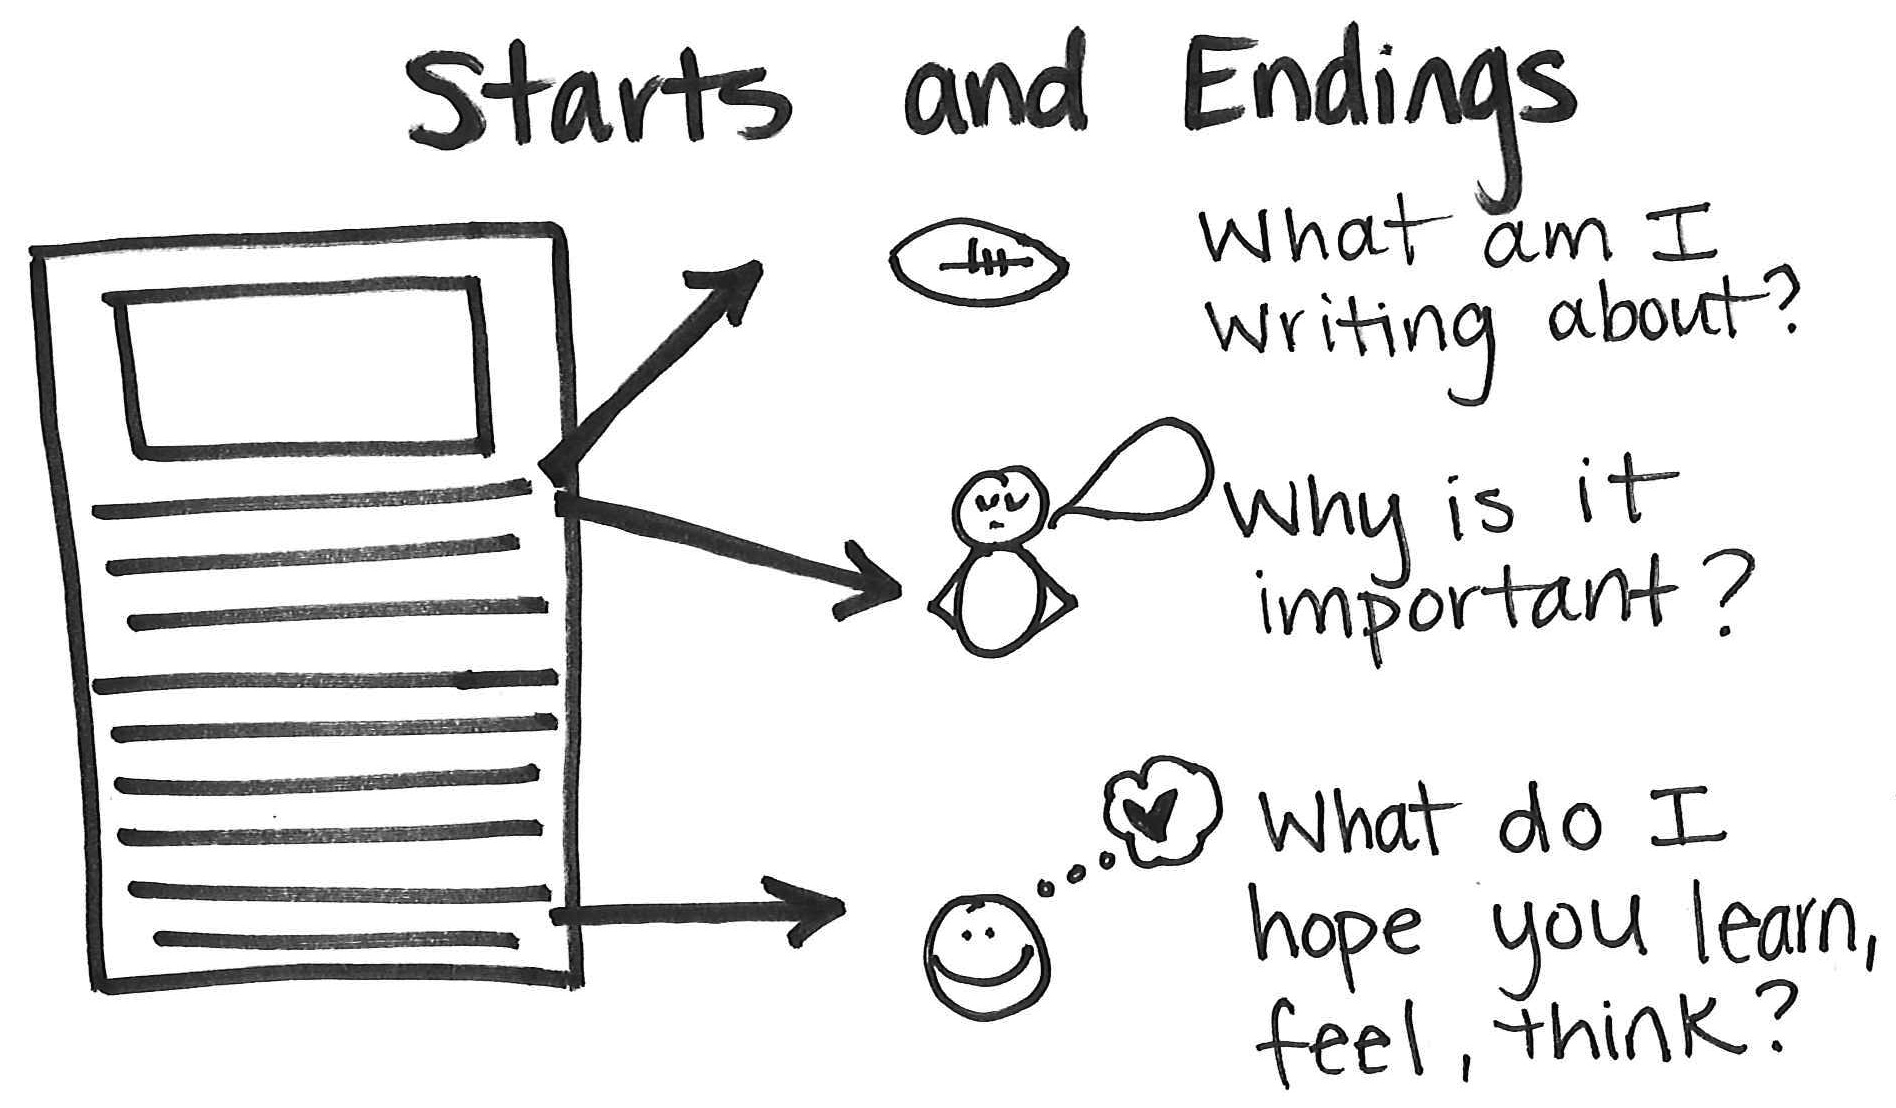 Starts and Endings
What am I
writing about?
Why is it
important?
What do I
hope you learn,
feel, think?